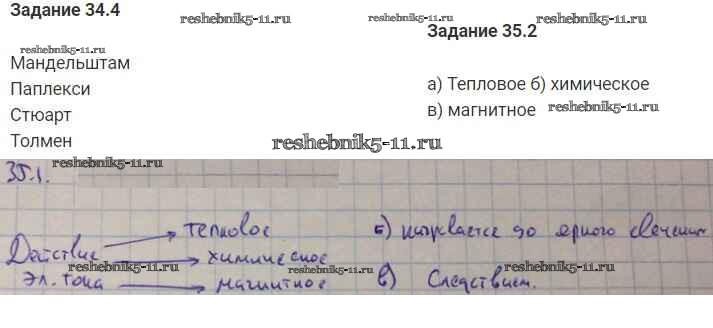 Задание 34.4
reshebnik5-11.ru
reshebnik5-11.ru
Мандельштам
Паплекси
Стюарт
Толмен
reshebnik5-11.ru
Задание 35.2
а) Тепловое б) химическое
в) магнитное reshebnik5-11.ru
reshebnik5-11.ru
reshebnik5-11.ru
35.1.
Действие
эл. тока
тепловое
химическое
магнитное
reshebnik5-11.ru
reshebnik5-11.ru
б) нагревается до яркого свечения
в) Следствием.
reshebnik5-11.ru